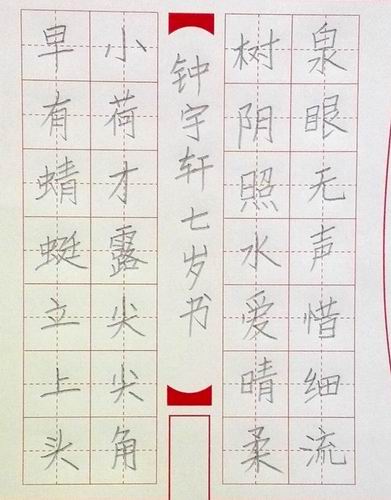 泉眼无声惜细流
树阴照水爱晴柔
钟宇轩七岁书
小荷才露尖尖角
早有蜻蜓立上头